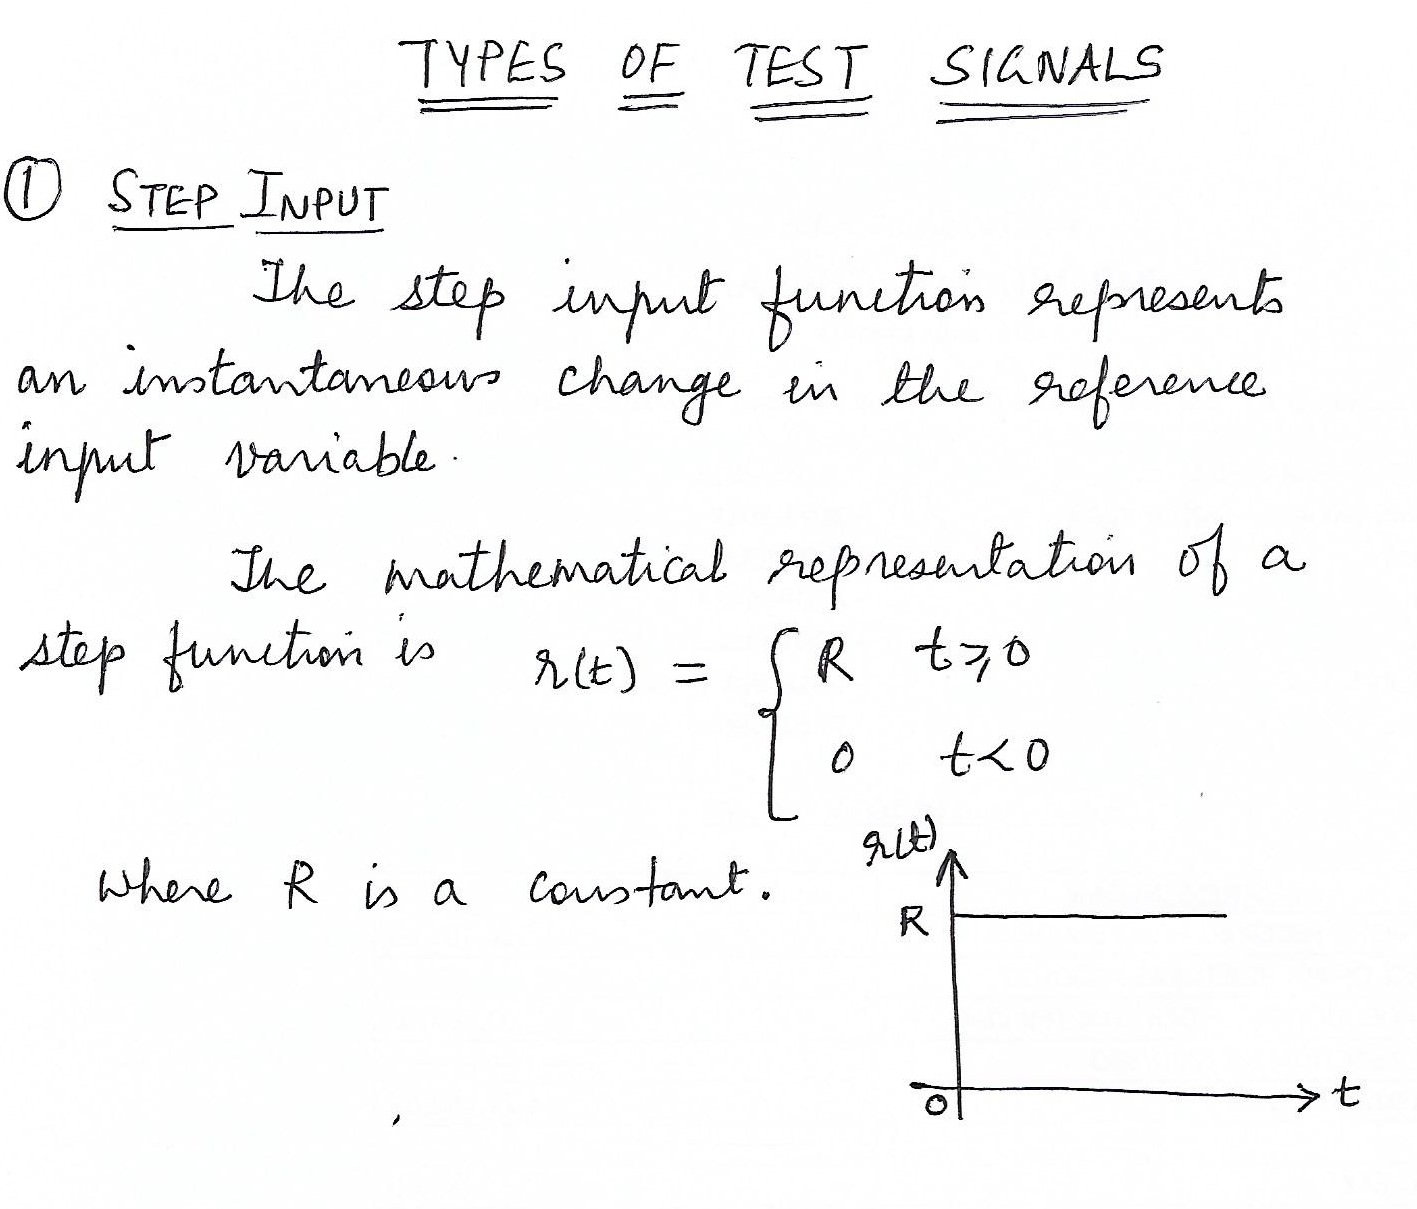 TYPES OF TEST SIGNALS
① STEP INPUT
The step input function represents
an instantaneous change in the reference
input variable.
The mathematical representation of a
step function is r(t) = { R t≥0
0 t<0
where R is a constant.
r(t)
R
0
t